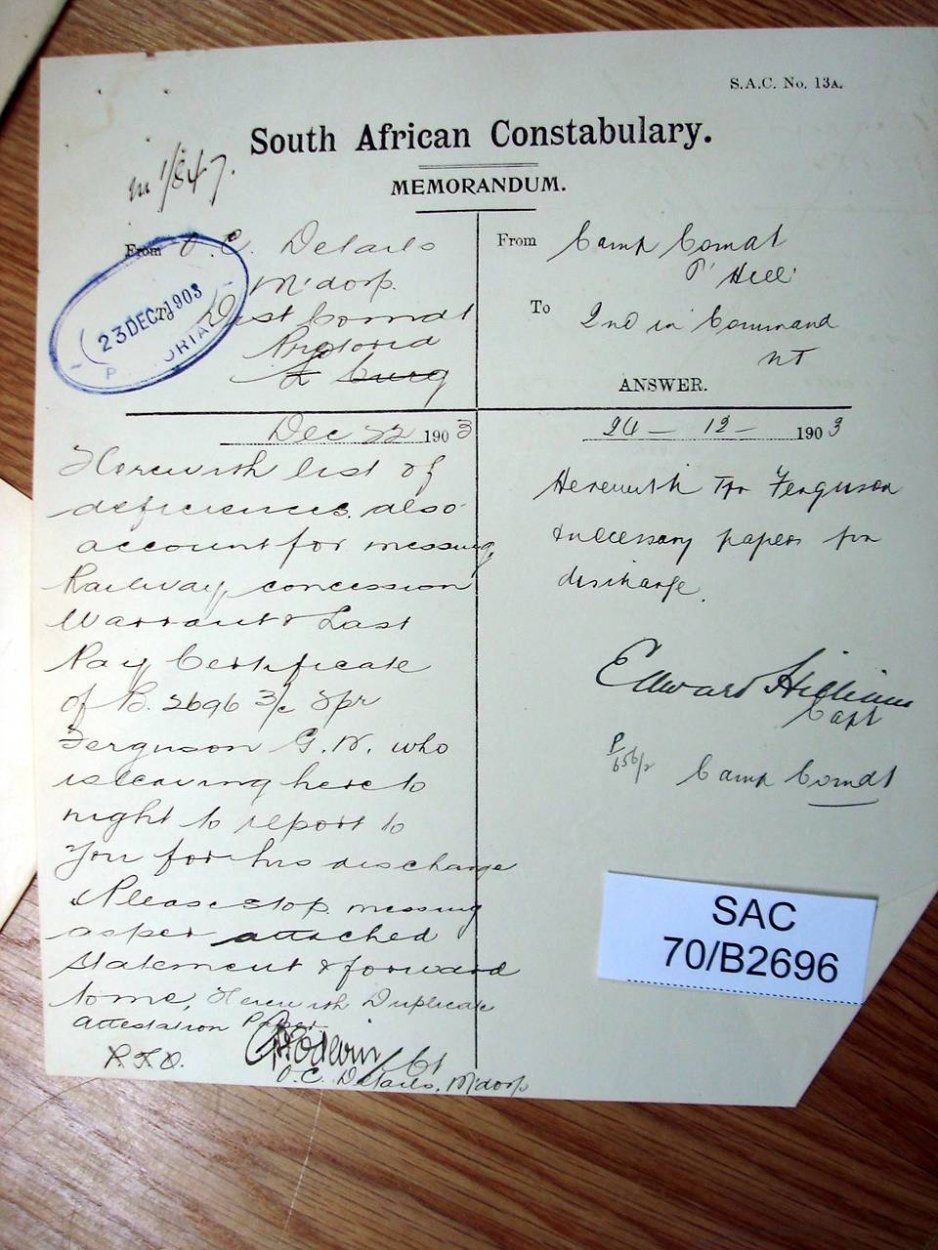 S.A.C. No. 13A.
South African Constabulary.
MEMORANDUM.
m 1/847.
From O. C. Details
M'dorp.
Dist Comdt
Pretoria
23 DEC 1903
P ORIA
Dec 22 1903
Herewith list of
deficiences. also
account for messing
Railway, concession
Warrant & Last
Pay Certificate
of B. 2696 3/c Tpr
Ferguson G. W. who
is leaving here to
night to report to
You for his discharge
Please stop messing
as per attached
statement & forward
to me, Herewith Duplicate
Attestation Paper
O.C. Details, M'dorp
From Camp Comdt
P' Hill
To 2nd in Command
NT
ANSWER.
24 - 12 - 1903
Herewith Tpr Ferguson
& necessary papers for
discharge.
Edward Hilliam
Capt
Camp Comdt
SAC
70/B2696